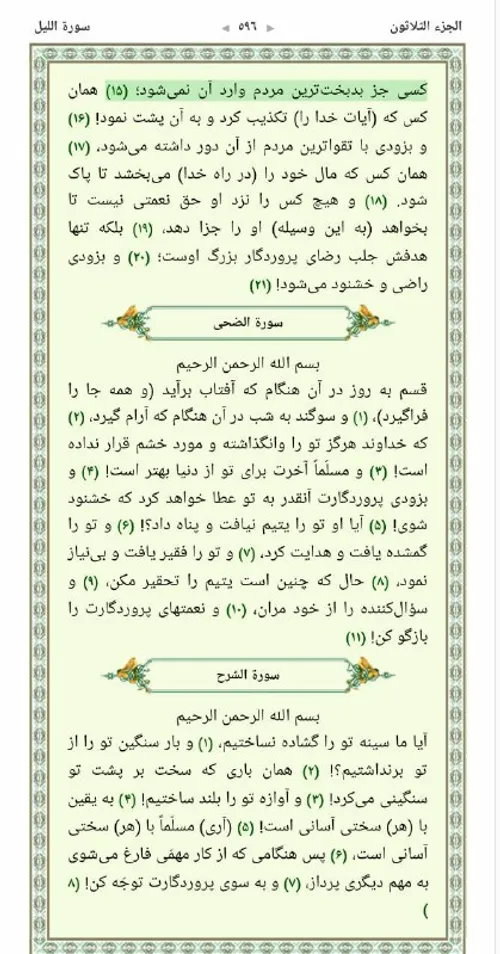 الجزء الثلاثون ◀ ٥٩٦ ▶ سورة الليل
کسی جز بدبخت‌ترین مردم وارد آن نمی‌شود؛ (۱۵) همان
کس که (آیات خدا را) تکذیب کرد و به آن پشت نمود! (۱۶)
و بزودی با تقواترین مردم از آن دور داشته می‌شود، (۱۷)
همان کس که مال خود را (در راه خدا) می‌بخشد تا پاک
شود. (۱۸) و هیچ کس را نزد او حق نعمتی نیست تا
بخواهد (به این وسیله) او را جزا دهد، (۱۹) بلکه تنها
هدفش جلب رضای پروردگار بزرگ اوست؛ (۲۰) و بزودی
راضی و خشنود می‌شود! (۲۱)
سورة الضحى
بسم الله الرحمن الرحیم
قسم به روز در آن هنگام که آفتاب برآید (و همه جا را
فراگیرد)، (۱) و سوگند به شب در آن هنگام که آرام گیرد، (۲)
که خداوند هرگز تو را وانگذاشته و مورد خشم قرار نداده
است! (۳) و مسلّماً آخرت برای تو از دنیا بهتر است! (۴) و
بزودی پروردگارت آنقدر به تو عطا خواهد کرد که خشنود
شوی! (۵) آیا او تو را یتیم نیافت و پناه داد؟! (۶) و تو را
گمشده یافت و هدایت کرد، (۷) و تو را فقیر یافت و بی‌نیاز
نمود، (۸) حال که چنین است یتیم را تحقیر مکن، (۹) و
سؤال‌کننده را از خود مران، (۱۰) و نعمتهای پروردگارت را
بازگو کن! (۱۱)
سورة الشرح
بسم الله الرحمن الرحیم
آیا ما سینه تو را گشاده نساختیم، (۱) و بار سنگین تو را از
تو برنداشتیم؟! (۲) همان باری که سخت بر پشت تو
سنگینی می‌کرد! (۳) و آوازه تو را بلند ساختیم! (۴) به یقین
با (هر) سختی آسانی است! (۵) (آری) مسلّماً با (هر) سختی
آسانی است، (۶) پس هنگامی که از کار مهمّی فارغ می‌شوی
به مهم دیگری پرداز، (۷) و به سوی پروردگارت توجّه کن! (۸
)